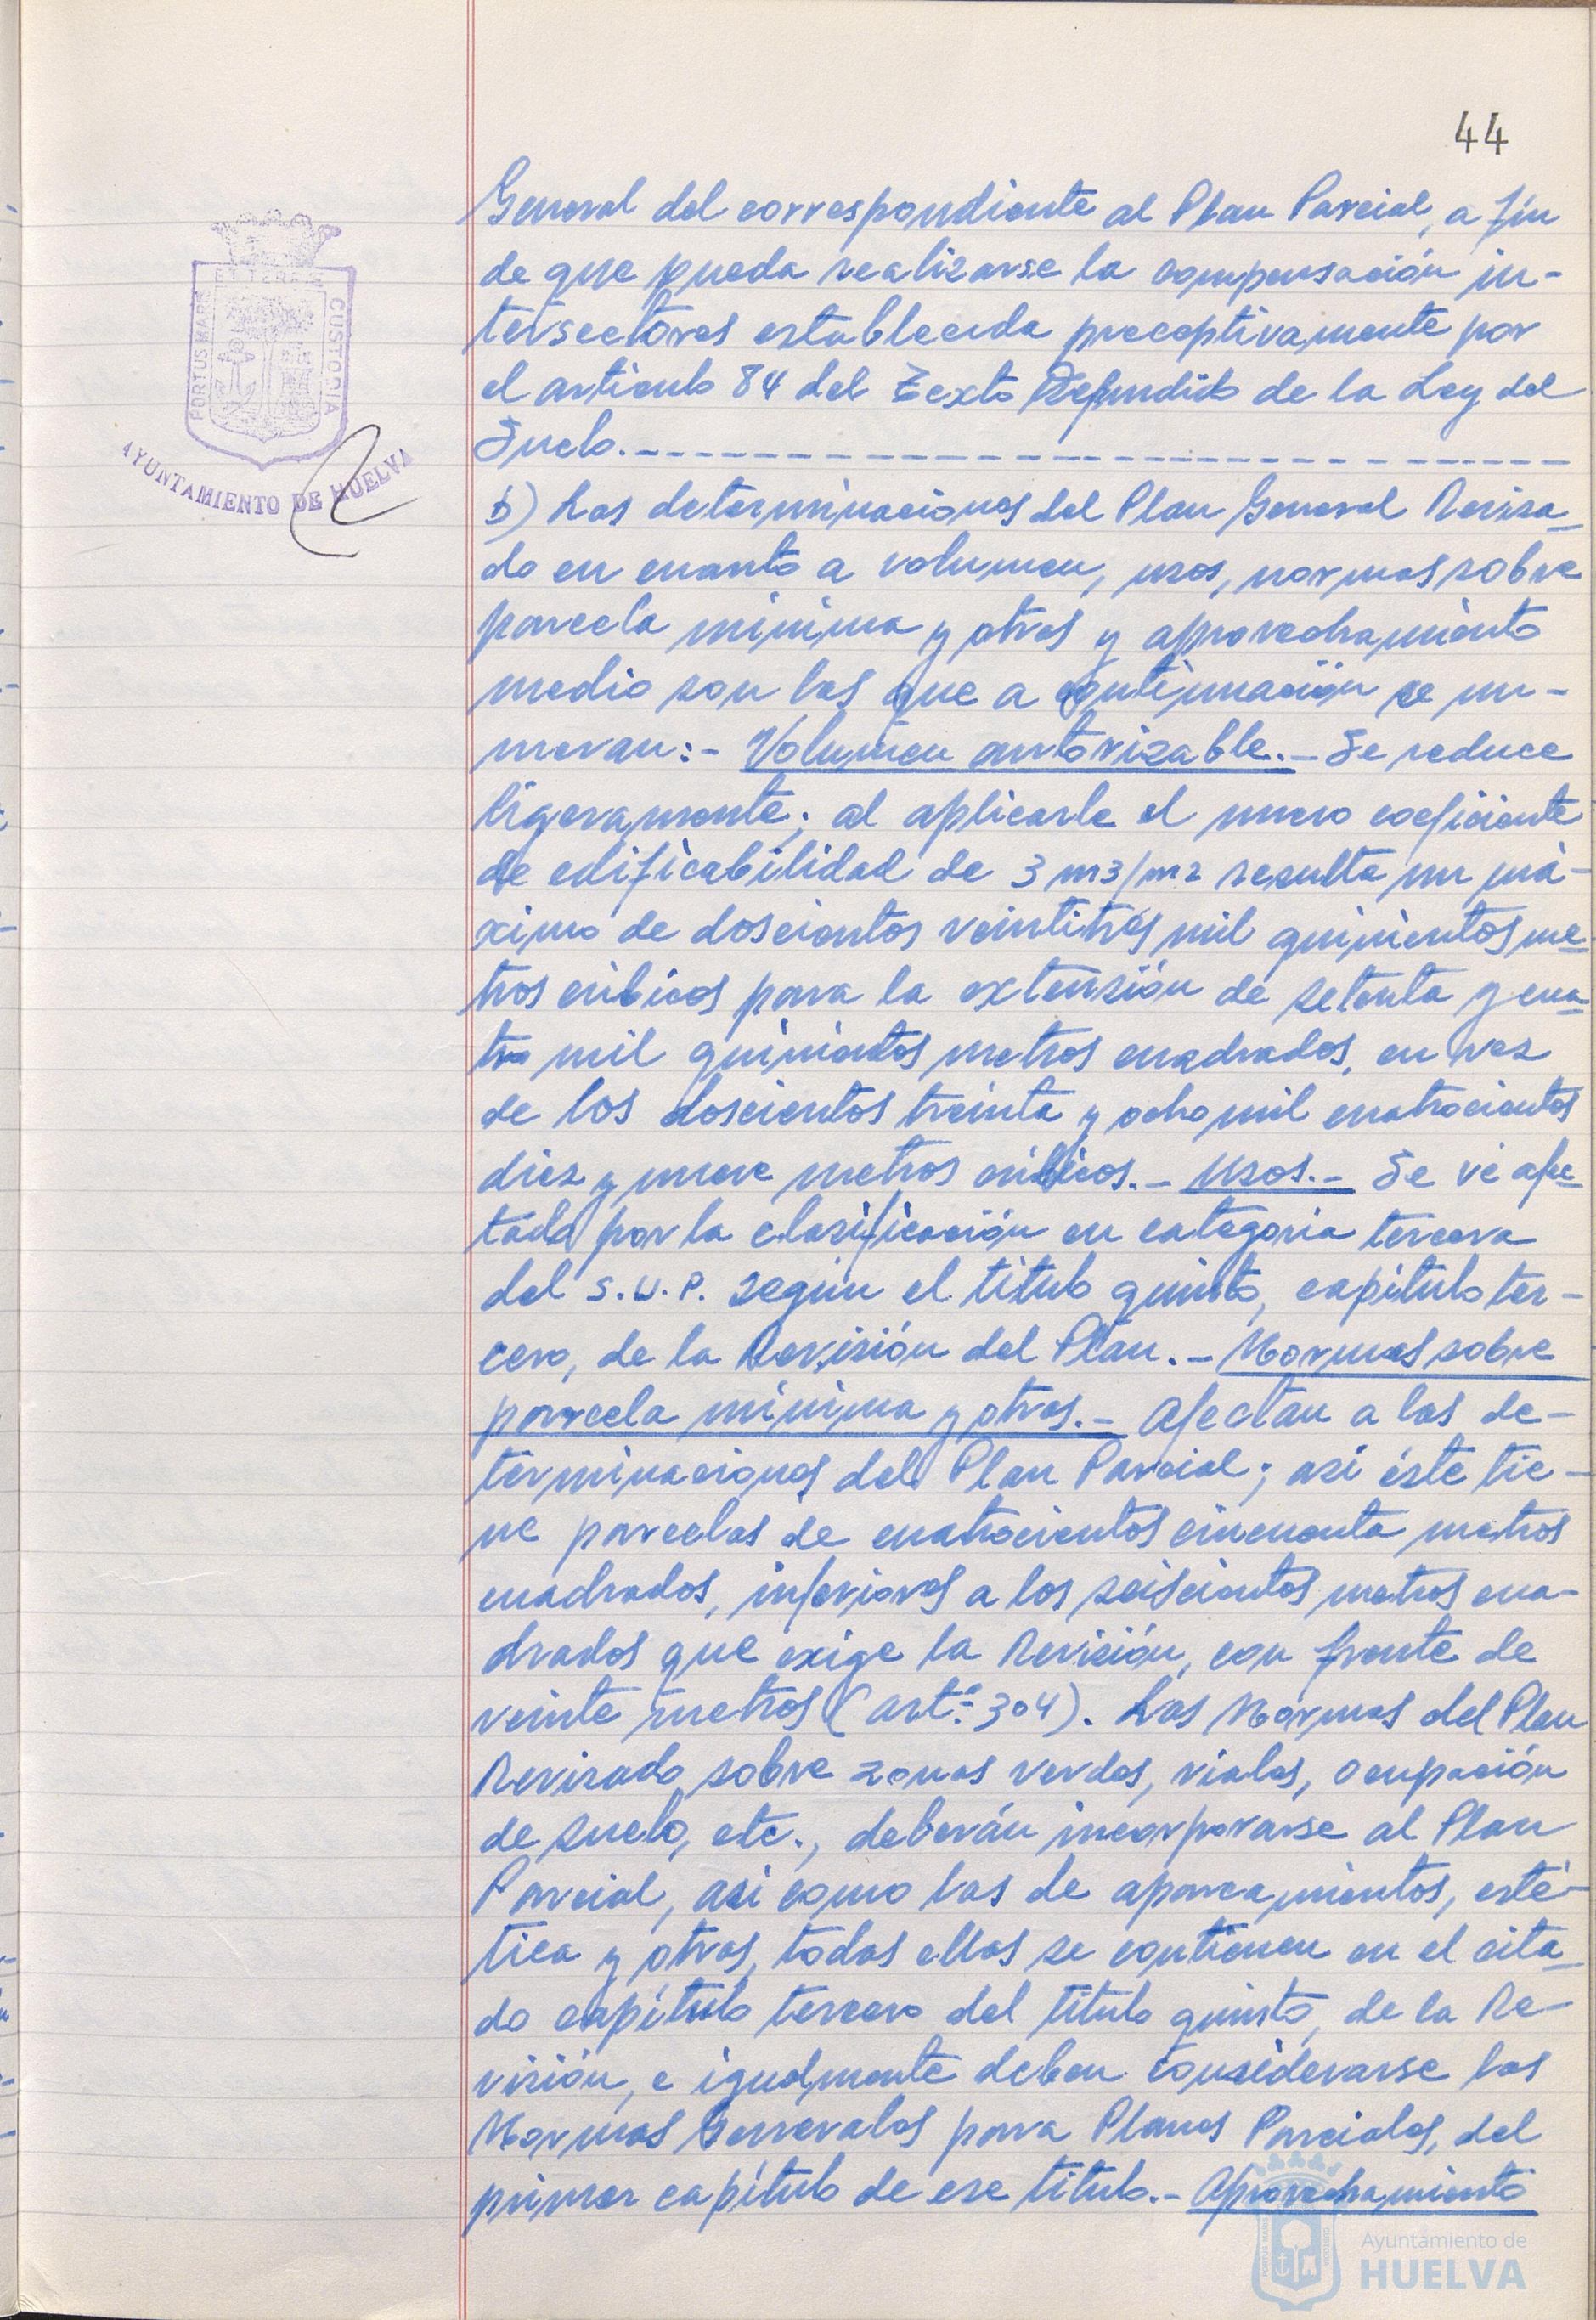 44
General del correspondiente al Plan Parcial, a fin
de que pueda realizarse la compensación in-
tersectores establecida preceptivamente por
el articulo 84 del Texto Refundido de la Ley del
Suelo.-------------------------------
b) Las determinaciones del Plan General Revisa-
do en cuanto a volumen, usos, normas sobre
parcela minima y otras y aprovechamiento
medio son las que a continuación se nu-
meran:- Volumen autorizable.- Se reduce
ligeramente; al aplicarle el nuevo coeficiente
de edificabilidad de 3 m3/m2 resulta un má-
ximo de doscientos veintitrés mil quinientos me-
tros cúbicos para la extensión de setenta y cua-
tro mil quinientos metros cuadrados, en vez
de los doscientos treinta y ocho mil cuatrocientos
diez y nueve metros cúbicos.- Usos.- Se vé afec-
tado por la clasificación en categoria tercera
del S.U.P. según el titulo quinto, capítulo ter-
cero, de la Revisión del Plan.- Normas sobre
parcela minima y otras.- Afectan a las de-
terminaciones del Plan Parcial; asi éste tie-
ne parcelas de cuatrocientos cincuenta metros
cuadrados, inferiores a los seiscientos metros cua-
drados que exige la Revisión, con frente de
veinte metros (artº. 304). Las Normas del Plan
Revisado sobre zonas verdes, viales, ocupación
de suelo, etc., deberán incorporarse al Plan
Parcial, asi como las de aparcamientos, esté-
tica y otras, todas ellas se contienen en el cita-
do capítulo tercero del titulo quinto, de la Re-
visión, e igualmente deben considerarse las
Normas Generales para Planes Parciales, del
primer capítulo de ese titulo.- Aprovechamiento
PORTUS MARIS
ET TERRAE
CUSTODIA
AYUNTAMIENTO DE HUELVA
Ayuntamiento de
HUELVA